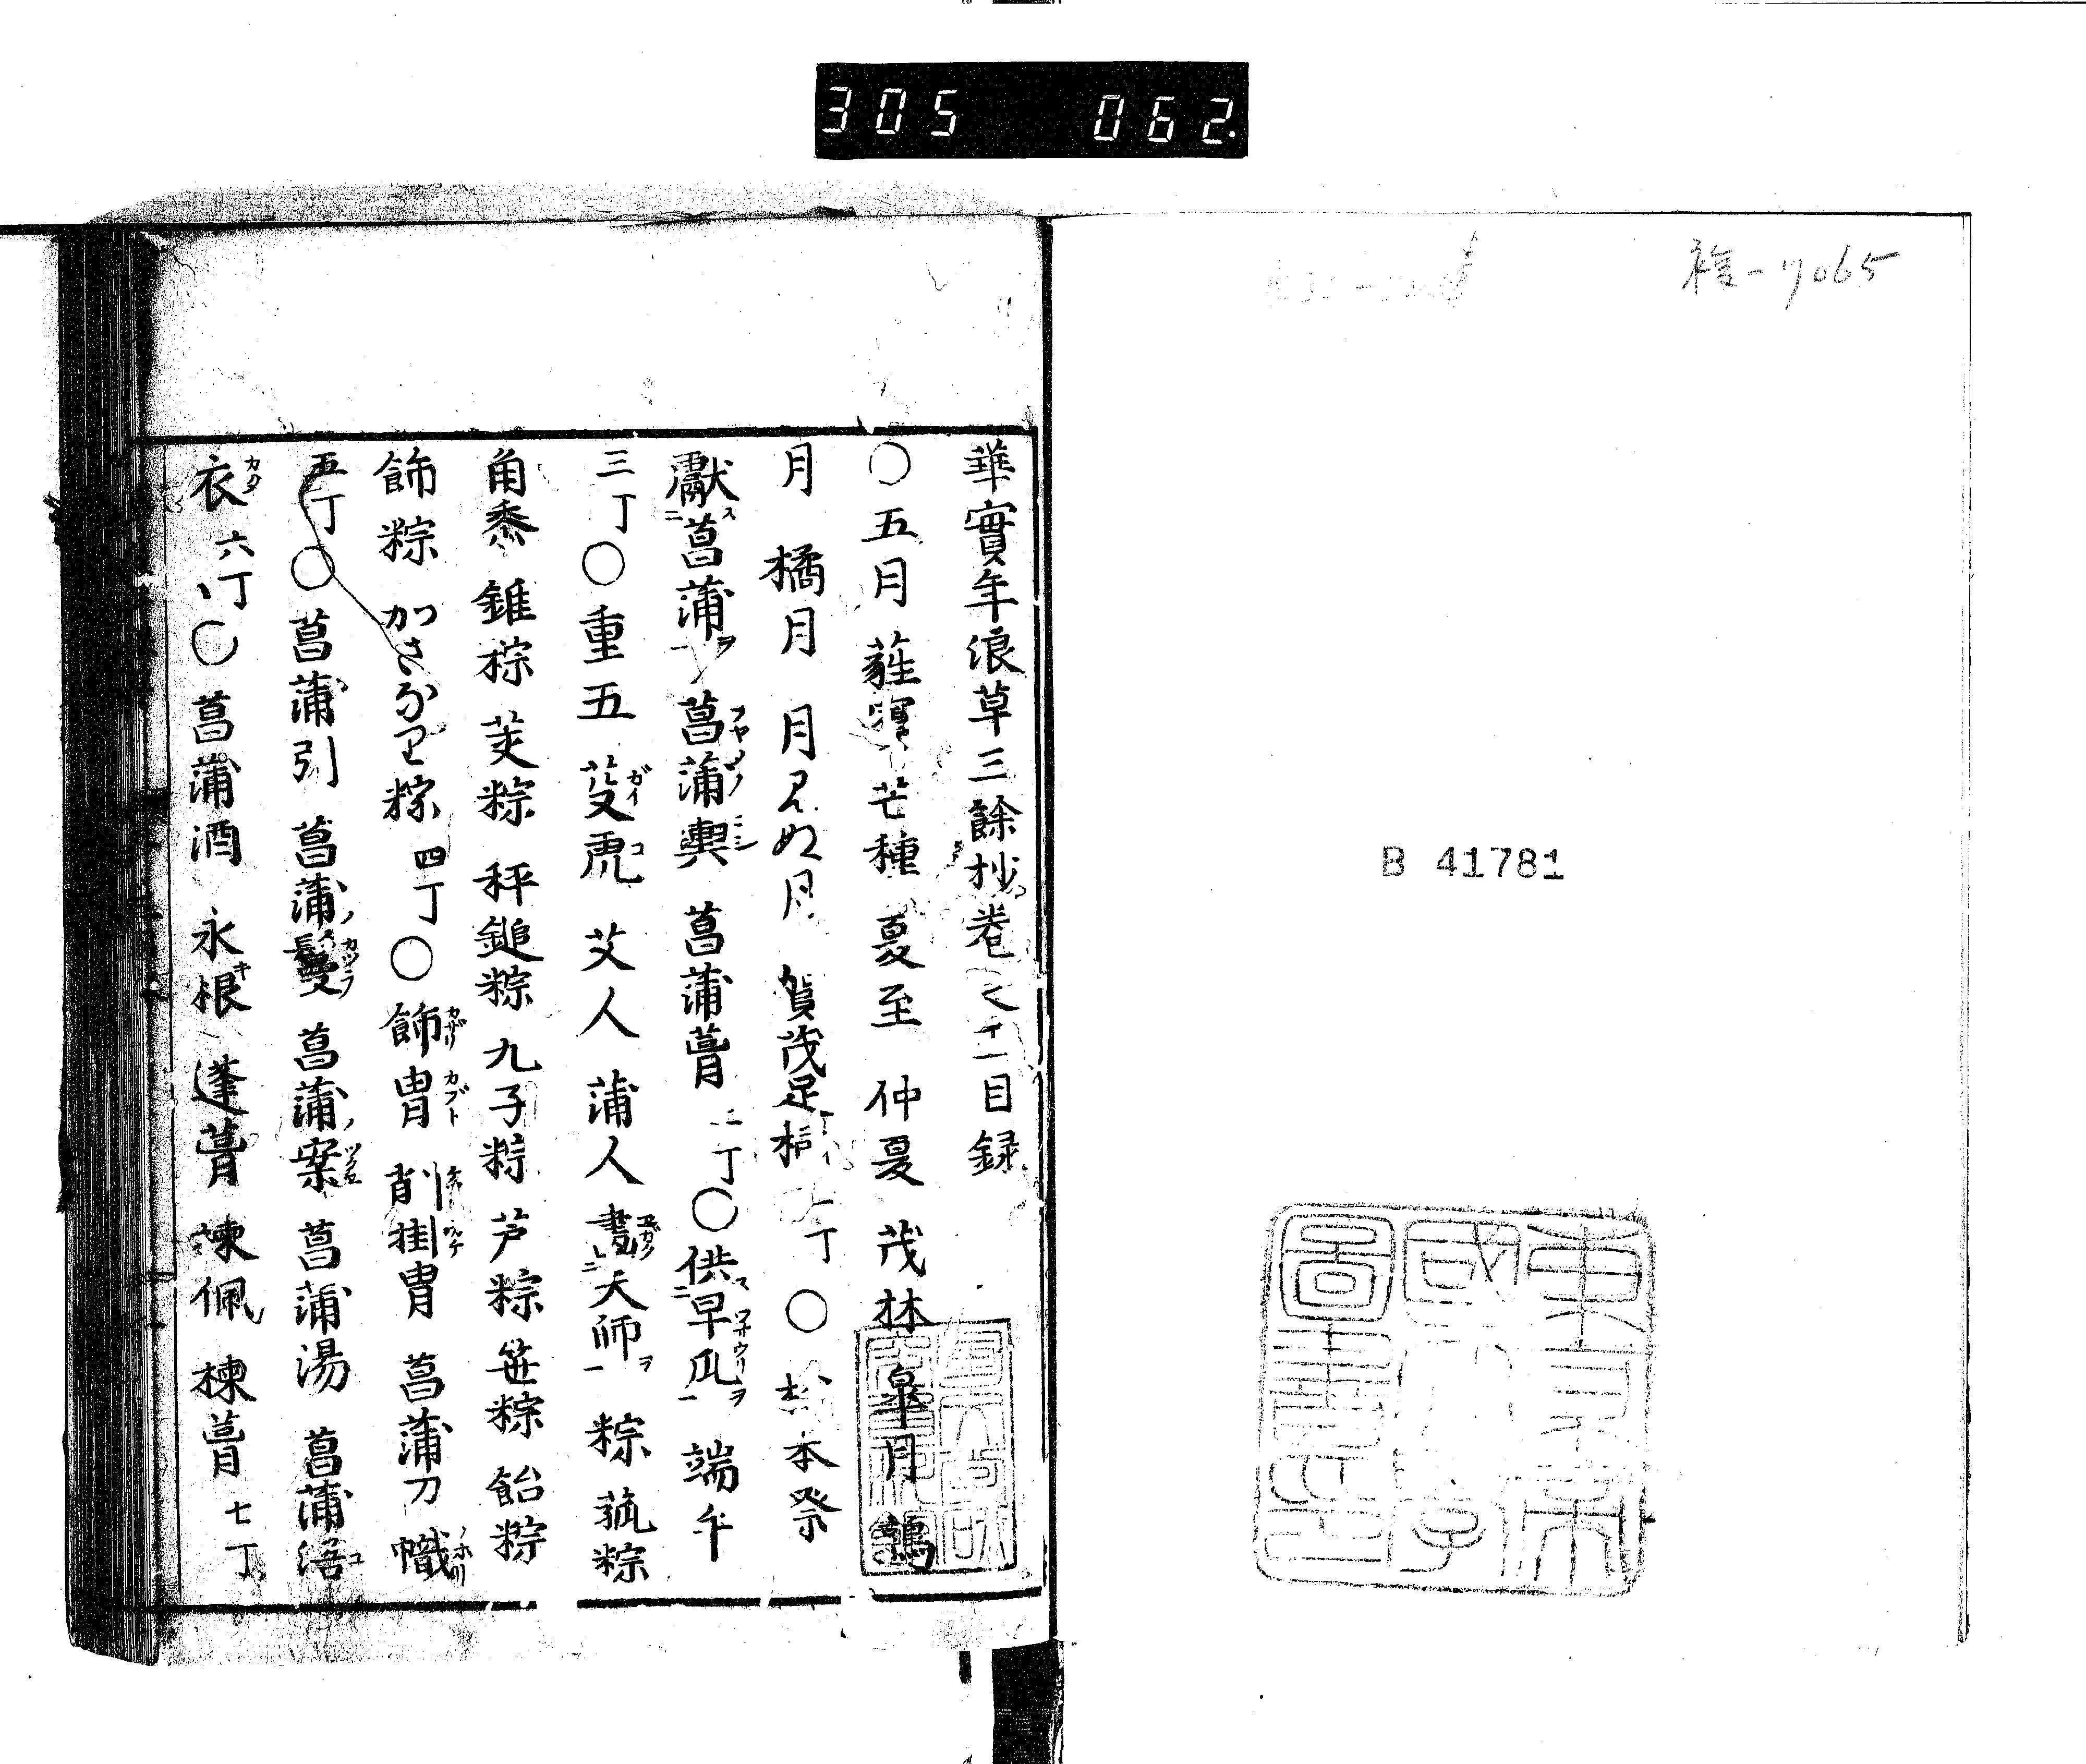 305 062
雑-7065
B 41781
東京帝國大學圖書印
華實年浪草三餘抄卷之 目録
〇五月 蕤賓 芒種 夏至 仲夏 茂林 皐月 鶉
月 橘月 月見ぬ月 賀茂足 丁〇 本祭
獻ス二菖蒲ヲ一 菖蒲輿 菖蒲葺 二丁〇供ス二早瓜ヲ一 端午
三丁〇重五 茇虎 艾人 蒲人 畫二天師ヲ一 粽 菰粽
角黍 錐粽 茭粽 秤鎚粽 九子粽 芦粽 笹粽 飴粽
飾粽 かさなり粽 四丁〇飾冑 削掛冑 菖蒲刀 幟
五丁〇菖蒲引 菖蒲鬘 菖蒲案 菖蒲湯 菖蒲
衣 六丁〇菖蒲酒 永根 蓬葺 楝佩 楝葺 七丁